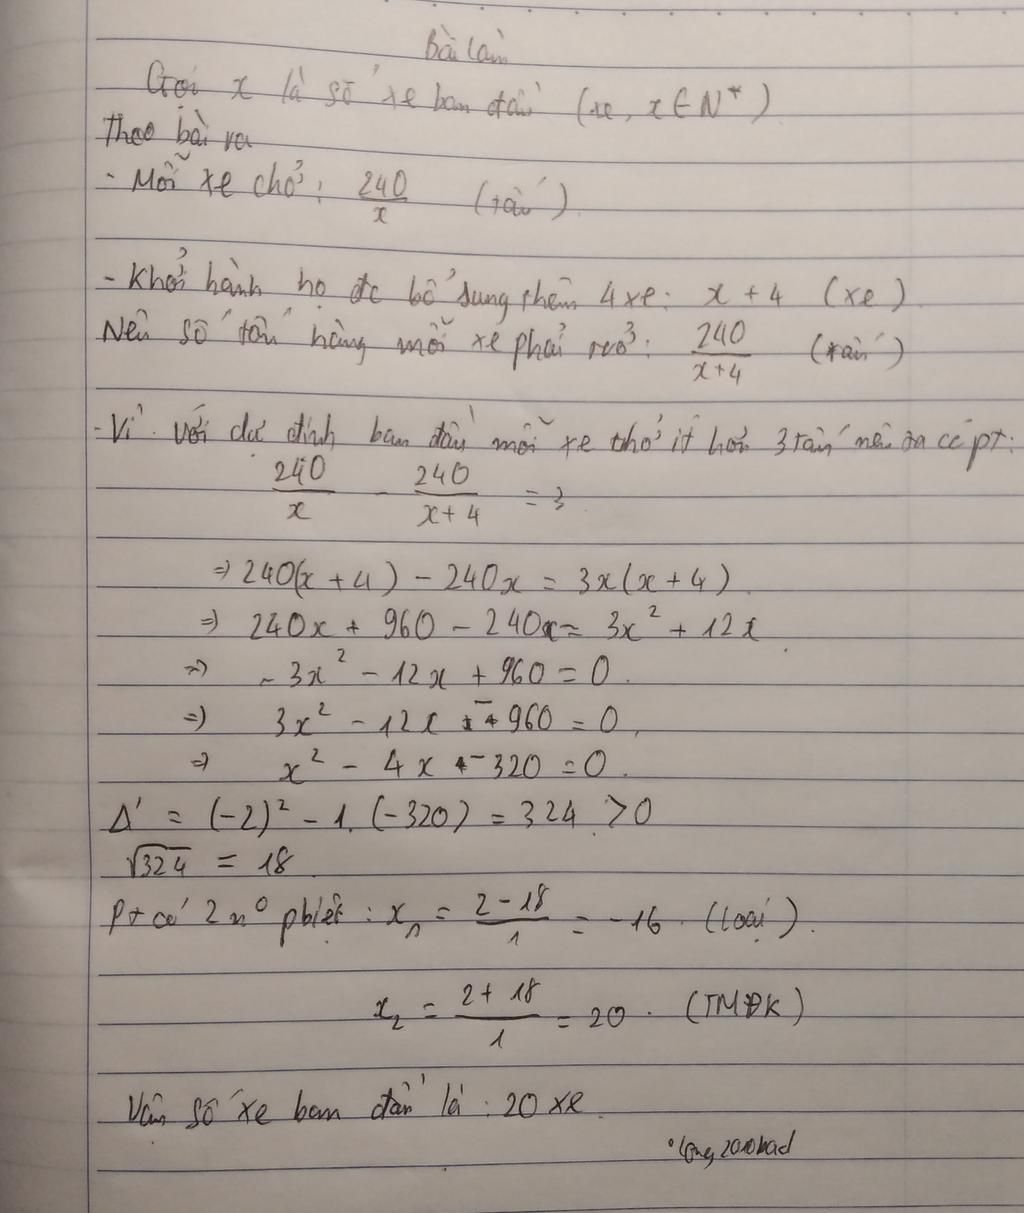 Bài làm
Gọi x là số xe ban đầu (xe, x ∈ N*)
Theo bài ra
- Mỗi xe chở: 240/x (tấn)
- Khởi hành họ đc bổ sung thêm 4 xe: x + 4 (xe)
Nên số tấn hàng mỗi xe phải chở: 240/(x+4) (tấn)
- Vì với dự định ban đầu mỗi xe chở ít hơn 3 tấn nên ta có pt:
240/x - 240/(x+4) = 3
⇒ 240(x + 4) - 240x = 3x(x + 4)
⇒ 240x + 960 - 240x = 3x² + 12x
⇒ - 3x² - 12x + 960 = 0.
⇒ 3x² - 12x - 960 = 0.
⇒ x² - 4x - 320 = 0.
Δ' = (-2)² - 1. (-320) = 324 > 0
√324 = 18
Pt có 2 n⁰ pbiệt: x₁ = (2 - 18)/1 = -16. (loại).
x₂ = (2 + 18)/1 = 20. (TMĐK)
Vậy số xe ban đầu là: 20 xe.